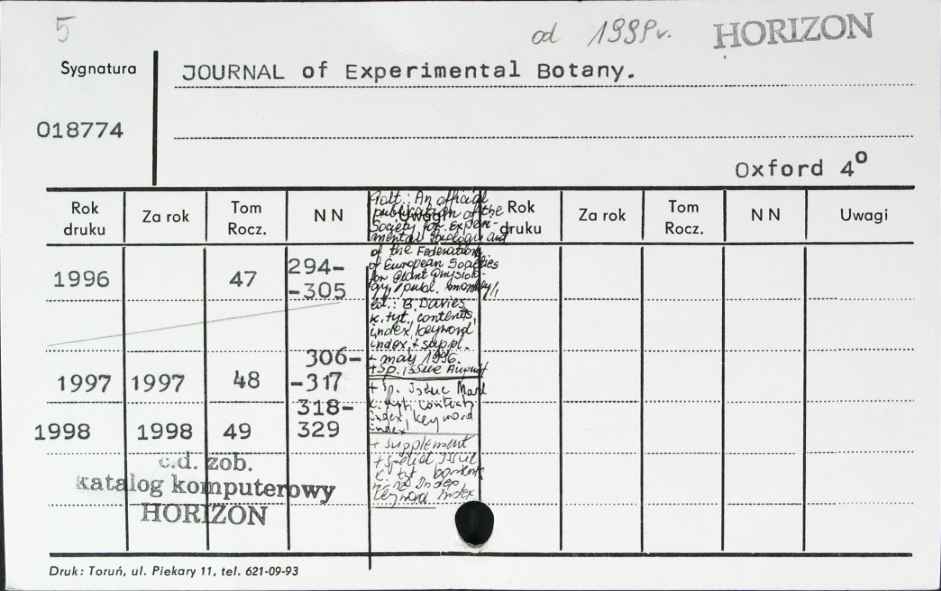 5
od 199 r. HORIZON
Sygnatura
JOURNAL of Experimental Botany.
018774
Oxford 4°
Rok druku Za rok Tom Rocz. N N Uwagi Rok druku Za rok Tom Rocz. N N Uwagi
An official
publication of the
Society for Experi-
mental Biology and
of the Federation
of European Societies
for Plant Physiolo-
gy, publ. monthly
ed.: B. Davies
k. tyt., contents,
index, keyword
index, + suppl.
+ may 1996.
+ Sp. issue August
1996 47 294-
-305
1997 1997 48 306-
-317
+ Sp. Issue
k. tyt., contents
index, keyword
index
1998 1998 49 318-
329
+ supplement
+ special issue
k. tyt
index
keyword index
c.d. zob.
katalog komputerowy
HORIZON
Druk: Toruń, ul. Piekary 11, tel. 621-09-93